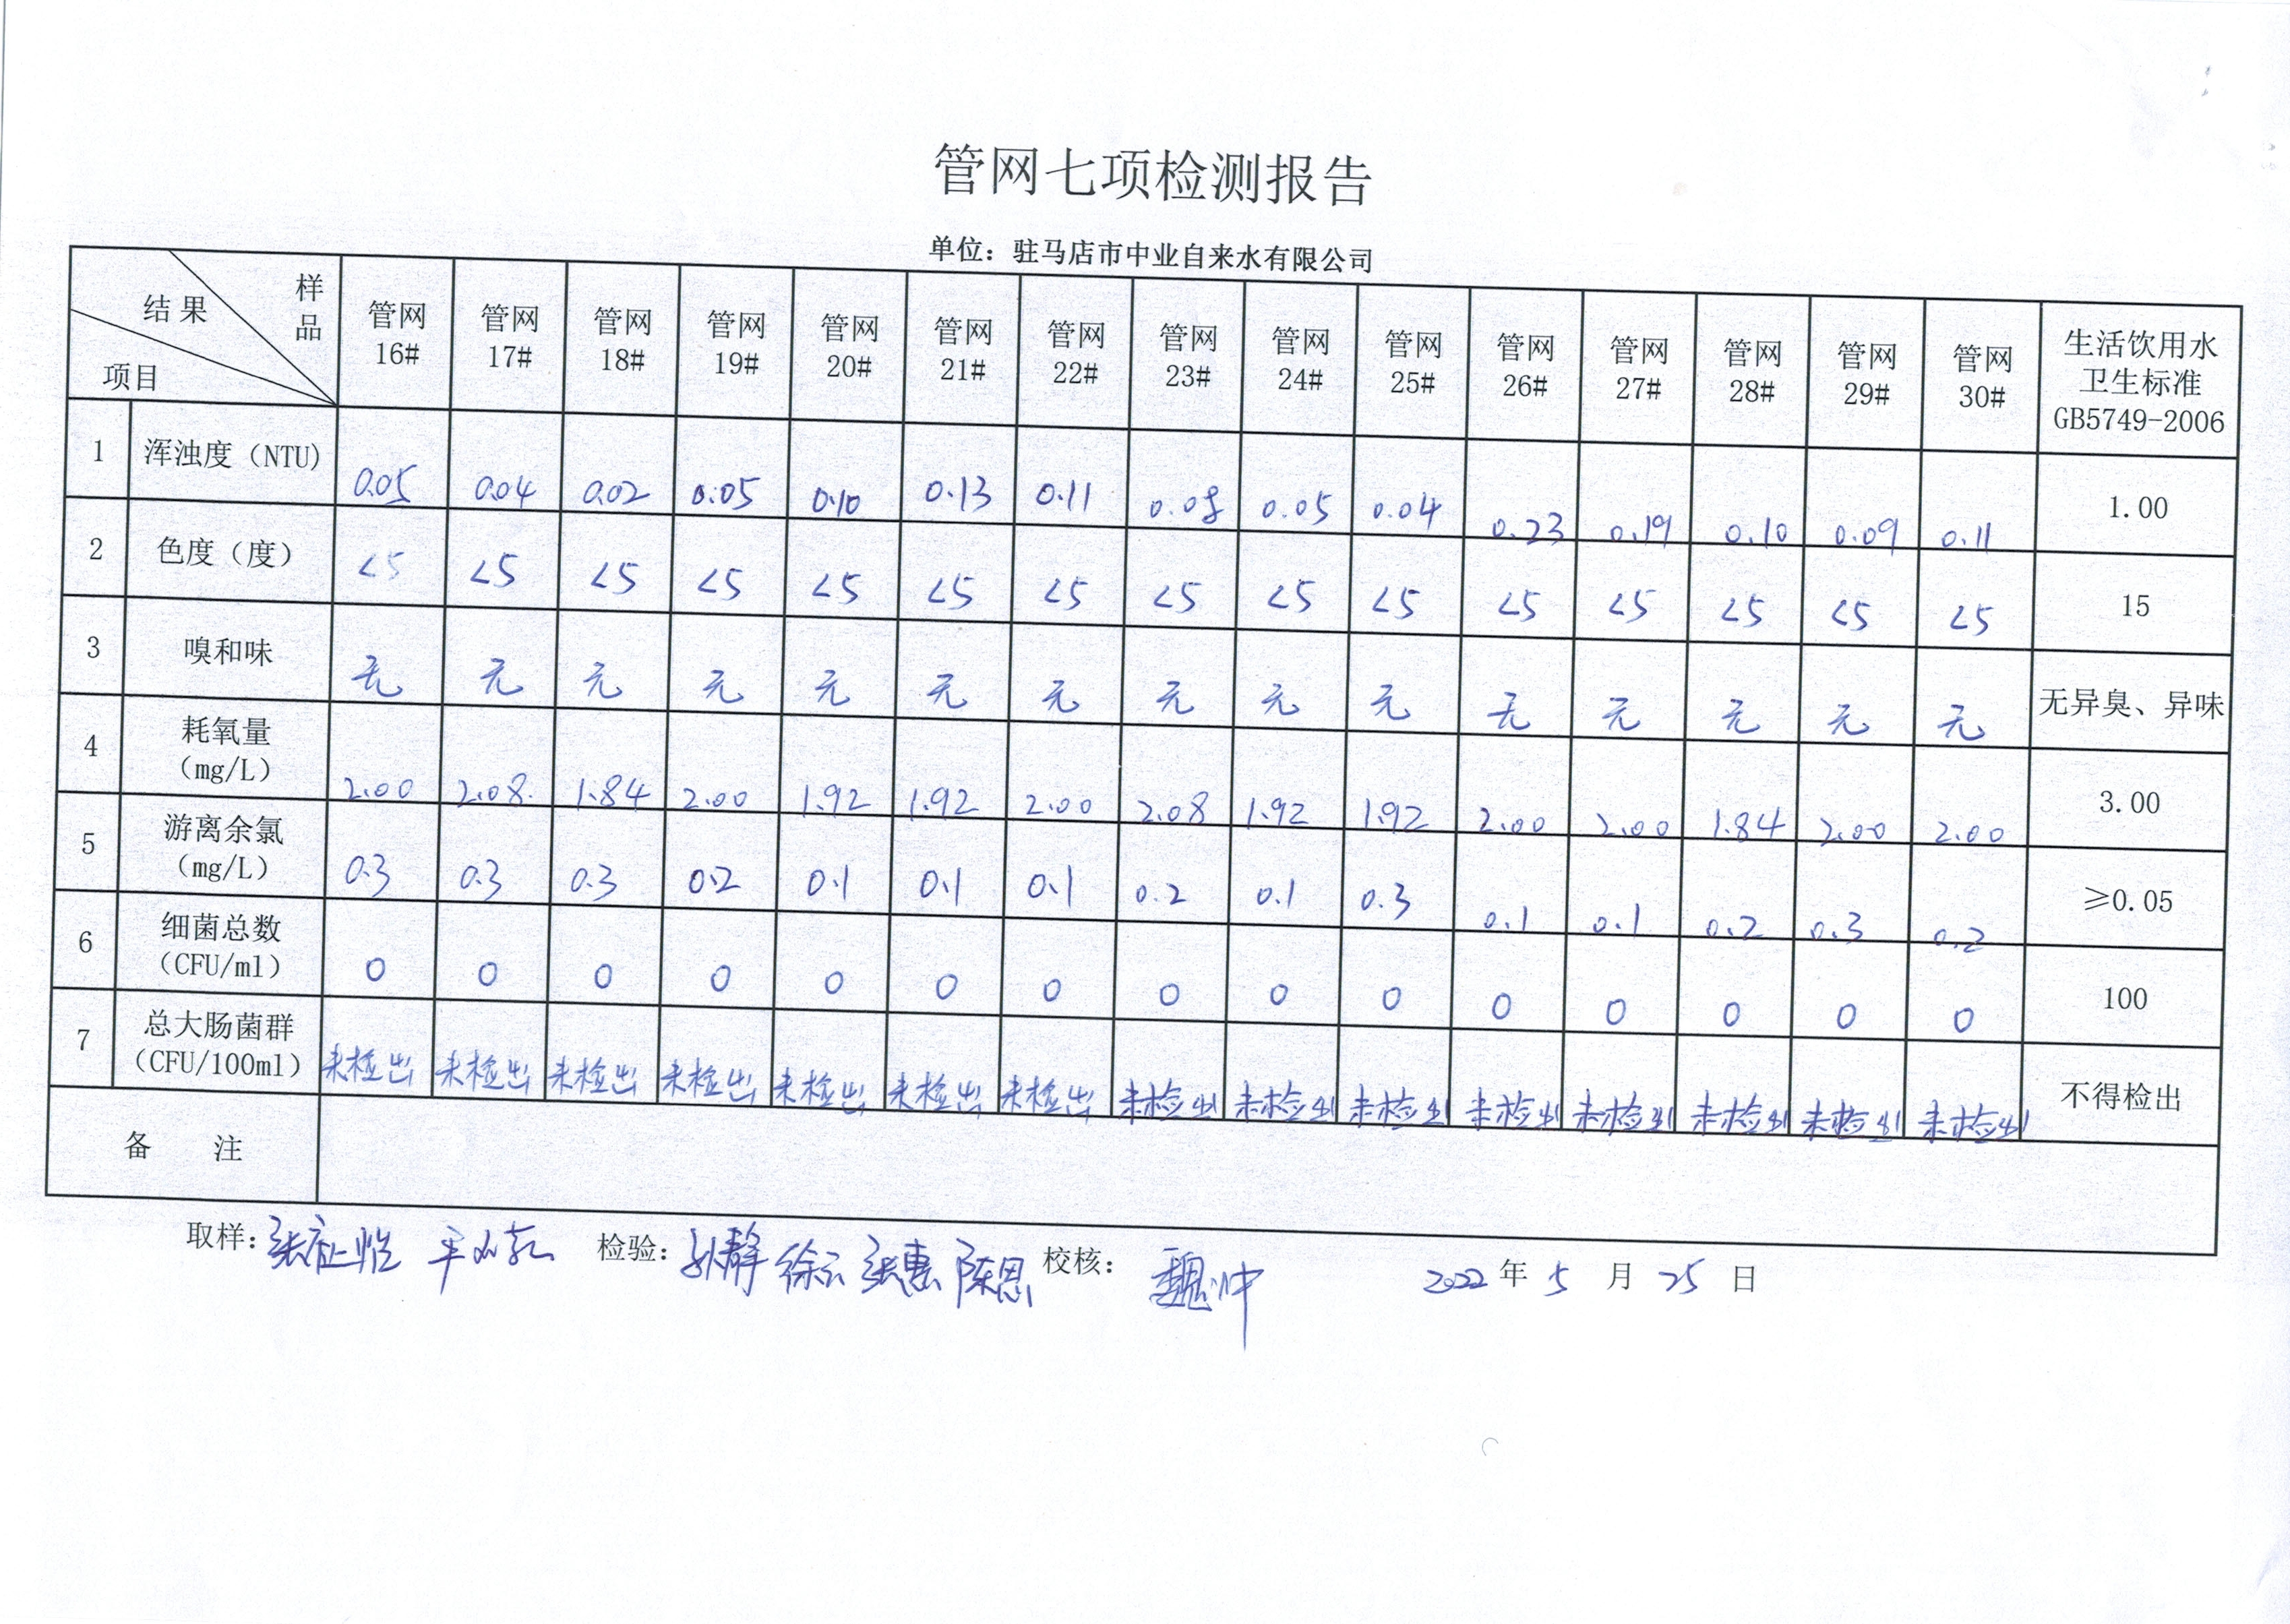 管网七项检测报告
单位：驻马店市中业自来水有限公司
结果 样品 项目 管网16# 管网17# 管网18# 管网19# 管网20# 管网21# 管网22# 管网23# 管网24# 管网25# 管网26# 管网27# 管网28# 管网29# 管网30# 生活饮用水卫生标准GB5749-2006
1 浑浊度（NTU） 0.05 0.04 0.02 0.05 0.10 0.13 0.11 0.08 0.05 0.04 0.23 0.19 0.10 0.09 0.11 1.00
2 色度（度） <5 <5 <5 <5 <5 <5 <5 <5 <5 <5 <5 <5 <5 <5 <5 15
3 嗅和味 无 无 无 无 无 无 无 无 无 无 无 无 无 无 无 无异臭、异味
4 耗氧量（mg/L） 2.00 2.08 1.84 2.00 1.92 1.92 2.00 2.08 1.92 1.92 2.00 2.00 1.84 2.00 2.00 3.00
5 游离余氯（mg/L） 0.3 0.3 0.3 0.2 0.1 0.1 0.1 0.2 0.1 0.3 0.1 0.1 0.2 0.3 0.2 ≥0.05
6 细菌总数（CFU/ml） 0 0 0 0 0 0 0 0 0 0 0 0 0 0 0 100
7 总大肠菌群（CFU/100ml） 未检出 未检出 未检出 未检出 未检出 未检出 未检出 未检出 未检出 未检出 未检出 未检出 未检出 未检出 未检出 不得检出
备 注
取样： 检验：孙静 徐云 张惠 陈恩 校核：魏冲 2022年5月25日